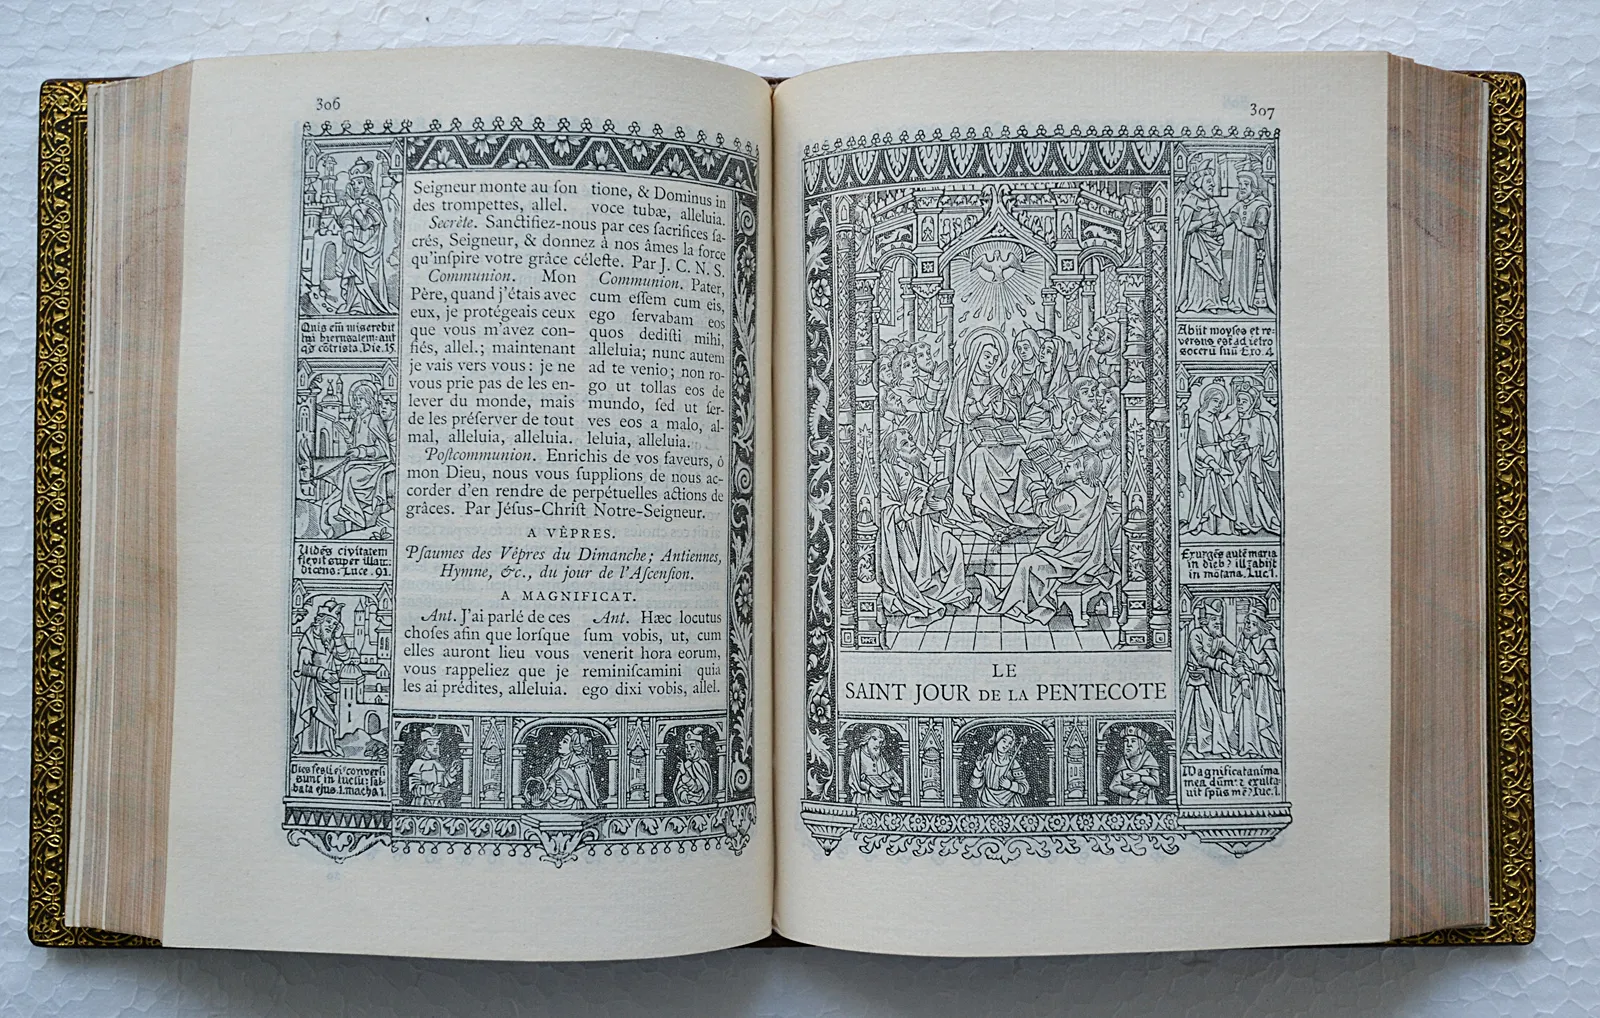 306
Seigneur monte au ſon
des trompettes, allel.
tione, & Dominus in
voce tubæ, alleluia.
Secrète. Sanctifiez-nous par ces ſacrifices ſa-
crés, Seigneur, & donnez à nos âmes la force
qu'inſpire votre grâce céleſte. Par J. C. N. S.
Communion. Mon
Père, quand j'étais avec
eux, je protégeais ceux
que vous m'avez con-
fiés, allel.; maintenant
je vais vers vous : je ne
vous prie pas de les en-
lever du monde, mais
de les préſerver de tout
mal, alleluia, alleluia.
Communion. Pater,
cum eſſem cum eis,
ego ſervabam eos
quos dediſti mihi,
alleluia; nunc autem
ad te venio; non ro-
go ut tollas eos de
mundo, ſed ut ſer-
ves eos a malo, al-
leluia, alleluia.
Poſtcommunion. Enrichis de vos faveurs, ô
mon Dieu, nous vous ſupplions de nous ac-
corder d'en rendre de perpétuelles actions de
grâces. Par Jéſus-Chriſt Notre-Seigneur.
A VÊPRES.
Pſaumes des Vêpres du Dimanche; Antiennes,
Hymne, &c., du jour de l'Aſcenſion.
A MAGNIFICAT.
Ant. J'ai parlé de ces
choſes afin que lorſque
elles auront lieu vous
vous rappeliez que je
les ai prédites, alleluia.
Ant. Hæc locutus
ſum vobis, ut, cum
venerit hora eorum,
reminiſcamini quia
ego dixi vobis, allel.
Quis em̄ miserebit
tui hierusalem: aut
qͦ cōtrista. Hie. 15.
Uidēs civitatem
flevit super illam:
dicens: Luce. 91.
Dies festi ei' conversi
sunt in luctū: sab
bata ejus. 1. macha 1.
307
LE
SAINT JOUR DE LA PENTECOTE
Abiit moyses et re-
versus est ad ietro
socerū suū Exo. 4.
Exurgēs autē maria
in dieb' illꝭ abiit
in mōtana. Luc. 1.
Magnificat anima
mea dūm' ꝛ exulta-
vit spūs me' Luc. 1.